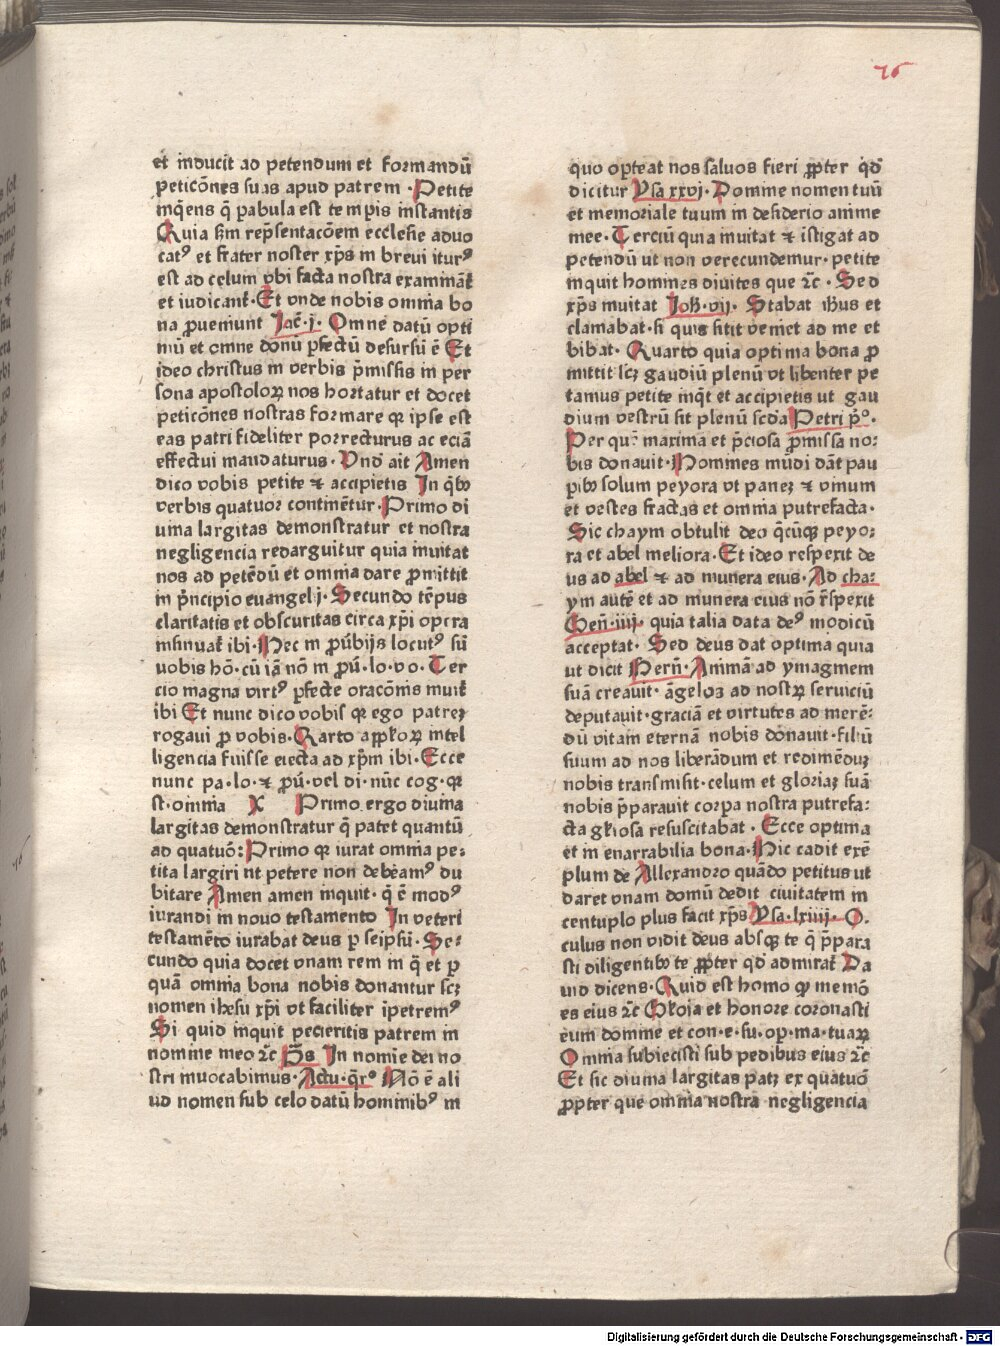 76
et inducit ad petendum et formandū
peticōnes suas apud patrem · Petite
inq̄ens q̄ pabula est tempis instantis
Quia scd̄m repn̄sentacōem ecclesie aduo
catꝰ et frater noster xp̄s in breui iturꝰ
est ad celum vbi facta nostra examinant̄
et iudicant̄ · Et vnde nobis omnia bo
na ꝓueniunt Jac̄ · j · Omne datū opti
mū et omne donū ꝑfectū desursū ē Et
ideo christus in verbis p̄missis in per
sona apostoloꝝ nos hortatur et docet
peticōnes nostras formare qꝛ ipse est
eas patri fideliter porrecturus ac eciā
effectui mandaturus · Vnd̄ ait Amen
dico vobis petite ⁊ accipietis In q̄bꝫ
verbis quatuor continētur · Primo di
uina largitas demonstratur et nostra
negligencia redarguitur quia inuitat
nos ad petēdū et omnia dare ꝓmittit
in p̄ncipio euangelij · Secundo tēpus
claritatis et obscuritas circa xp̄i opera
insinuat̄ ibi · Hec in ꝓūbijs locutꝰ sū
vobis hō · cū iā nō in ꝓū · lo · vo · Ter
cio magna virtꝰ ꝑfecte oracōnis innit̄
ibi Et nunc dico vobis qꝛ ego patreꝫ
rogaui ꝓ vobis · Qarto apl̄oꝝ intel
ligencia fuisse eiecta ad xp̄m ibi · Ecce
nunc pa · lo · ⁊ ꝓū · vel di · nūc cog · qꝛ
st · omnia X Primo ergo diuina
largitas demonstratur q̄ patet quantū
ad quatuō : Primo qꝛ iurat omnia pe-
tita largiri nt petere non debeamꝰ du
bitare Amen amen inquit · q̄ ē modꝰ
iurandi in nouo testamento In veteri
testamēto iurabat deus ꝑ seipsū · Se-
cundo quia docet vnam rem in q̄ et ꝑ
quā omnia bona nobis donantur scꝫ
nomen ihesu xp̄i vt faciliter ipetremꝰ
Si quid inquit pecieritis patrem in
nomine meo ⁊c̄ Ps̄ In nomīe dei no
stri inuocabimus · Actu · q̄rº Nō ē ali
ud nomen sub celo datū hominibꝰ in
quo opteat nos saluos fieri ꝓpter qd̄
dicitur Ysa xxvj · Domine nomen tuū
et memoriale tuum in desiderio anime
mee · Terciū quia inuitat ⁊ istigat ad
petendū ut non verecundemur · petite
inquit homines diuites que ⁊c̄ · Sed
xp̄s inuitat Joh̄ · vij · Stabat ih̄us et
clamabat · si quis sitit veniet ad me et
bibat · Quarto quia optima bona ꝓ
mittit scꝫ gaudiū plenū vt libenter pe
tamus petite inq̄t et accipietis ut gau
dium vestrū sit plenū scd̄a Petri p̄º ·
Per quē maxima et p̄ciosa ꝓmissa no-
bis donauit · Homines mūdi dāt pau
ꝑibꝫ solum peyora vt paneꝫ ⁊ vinum
et vestes fractas et omnia putrefacta ·
Sic chaym obtulit deo q̄cūqꝫ peyo-
ra et abel meliora · Et ideo respexit de
us ad abel ⁊ ad munera eius · Ad cha-
ym autē et ad munera eius nō r̄spexit
Gen̄ · iiij · quia talia data deꝰ modicū
acceptat · Sed deus dat optima quia
ut dicit Bern̄ · Animā ad ymaginem
suā creauit · āgeloꝫ ad nostꝝ seruiciū
deputauit · graciā et virtutes ad merē-
dū vitam eternā nobis donauit · filiū
suum ad nos liberādum et redimēduꝫ
nobis transmisit · celum et gloriaꝫ suā
nobis p̄parauit corpa nostra putrefa-
cta gl̄iosa resuscitabat · Ecce optima
et in enarrabilia bona · Hic cadit exē
plum de Allexandro quādo petitus ut
daret vnam domū dedit ciuitatem in
centuplo plus facit xp̄s Ysa · lxiiij · O ·
culus non vidit deus absqꝫ te q̄ p̄para
sti diligentibꝫ te ꝓpter qd̄ admirat̄ Da
uid dicens · Quid est homo qꝙ memō
es eius ⁊c̄ Gl̄oia et honore coronasti
eum domine et con · e · su · op · ma · tuaꝝ
Omnia subiecisti sub pedibus eius ⁊c̄
Et sic diuina largitas patꝫ ex quatuō
ꝓpter que omnia nostra negligencia
Digitalisierung gefördert durch die Deutsche Forschungsgemeinschaft - DFG